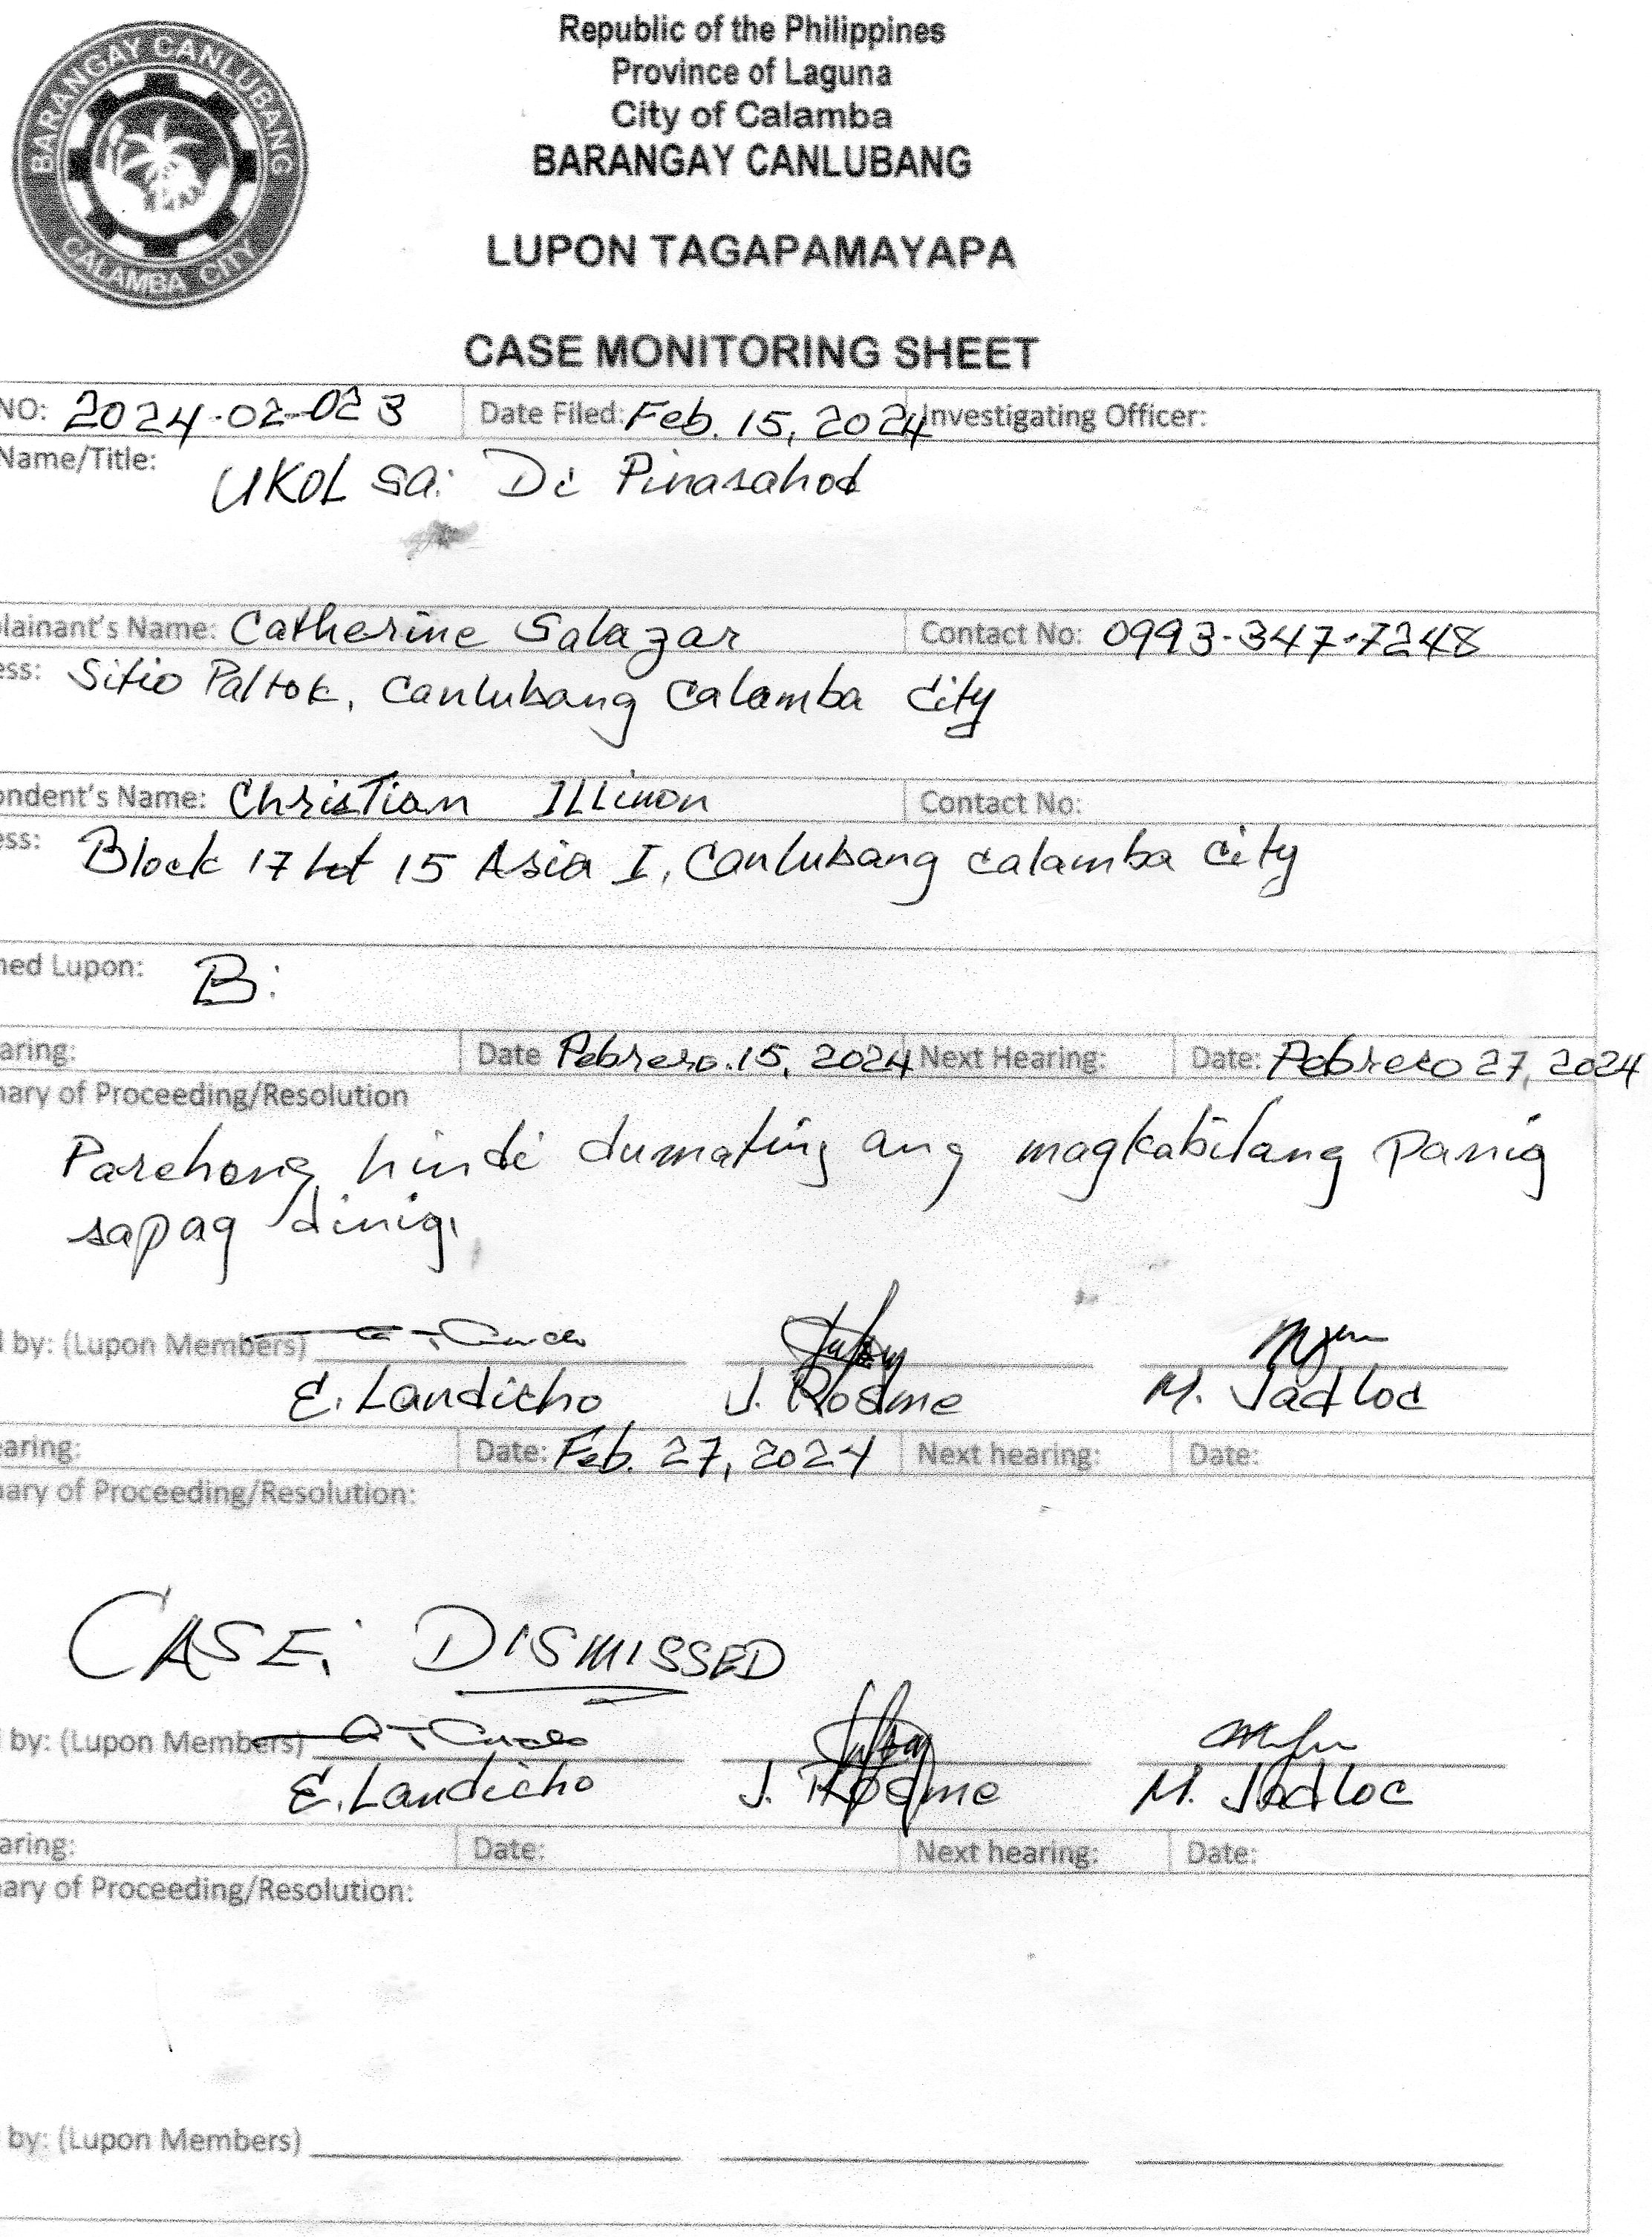 BARANGAY CANLUBANG
CALAMBA CITY
Republic of the Philippines
Province of Laguna
City of Calamba
BARANGAY CANLUBANG
LUPON TAGAPAMAYAPA
CASE MONITORING SHEET
NO: 2024-02-023 Date Filed: Feb. 15, 2024 Investigating Officer:
Name/Title: UKOL sa: Di Pinasahod
lainant's Name: Catherine Salazar Contact No: 0993-347-7248
ess: Sitio Paltok, Canlubang Calamba City
ondent's Name: Christian ILLimon Contact No:
ess: Block 17 Lot 15 Asia I, Canlubang Calamba City
ned Lupon: B:
aring: Date Pebrero.15, 2024 Next Hearing: Date: Pebrero 27, 2024
nary of Proceeding/Resolution
Parehong hindi dumating ang magkabilang Panig
sapag dinig.
by: (Lupon Members)
E. Landicho J. Rosme M. Jadloc
earing: Date: Feb. 27, 2024 Next hearing: Date:
nary of Proceeding/Resolution:
CASE: DISMISSED
by: (Lupon Members)
E. Landicho J. Rosme M. Jadloc
aring: Date: Next hearing: Date:
ary of Proceeding/Resolution:
by: (Lupon Members)